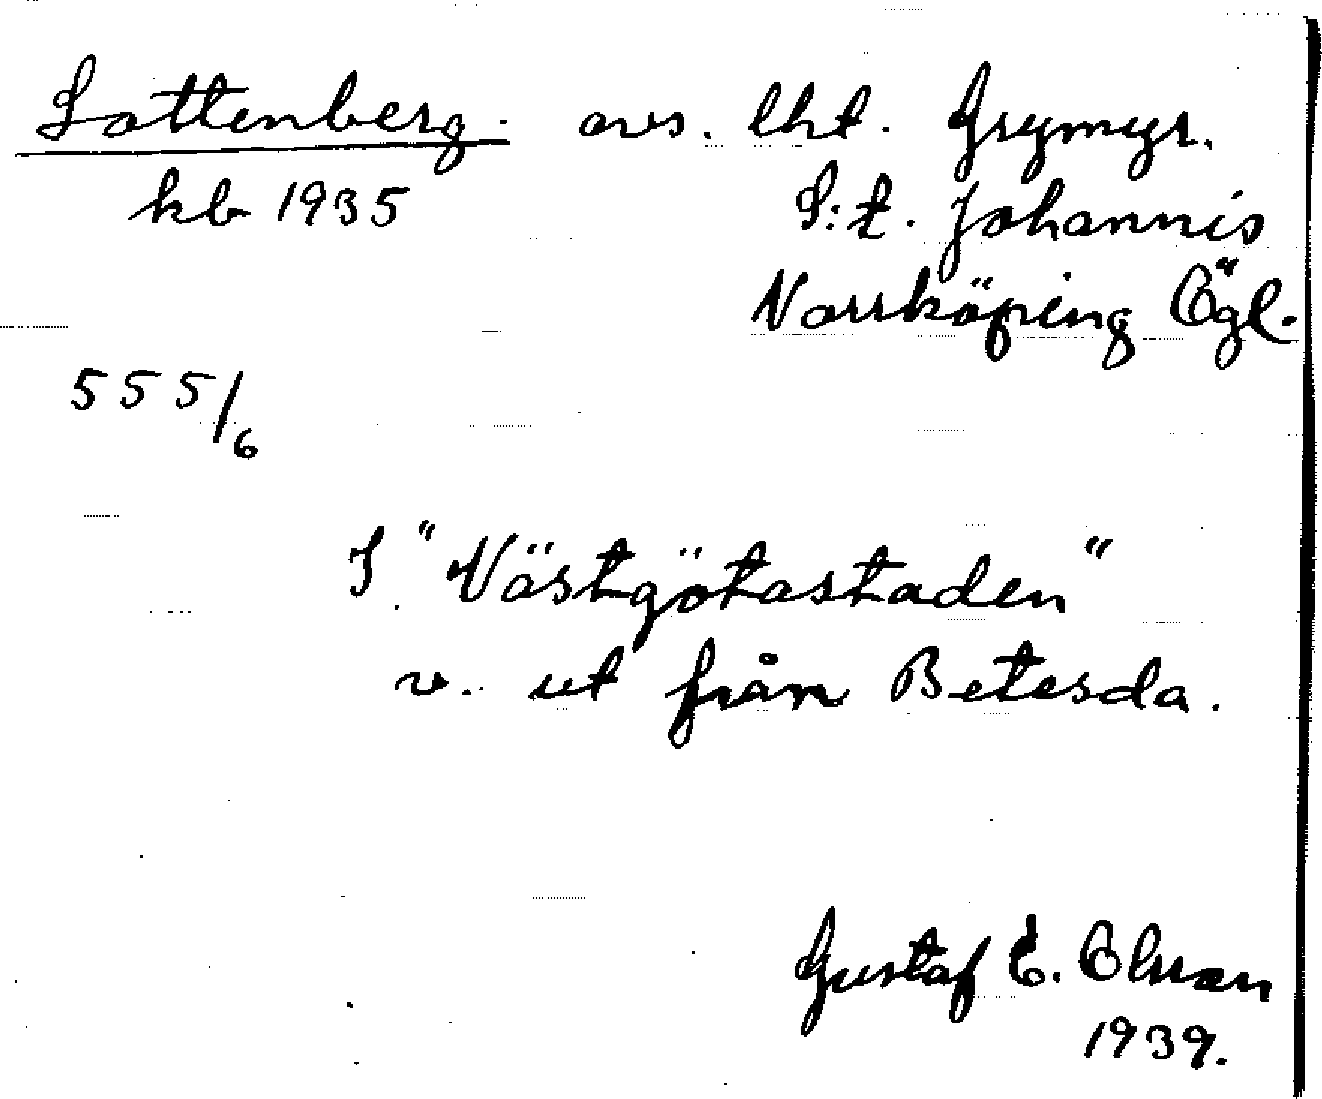 Lottenberg. avs. lht. Grymyr.
kb 1935 S:t. Johannis
Norrköping Ögl.
555/6
I "Västgötastaden"
v. ut från Betesda.
Gustaf E. Olsson
1939.